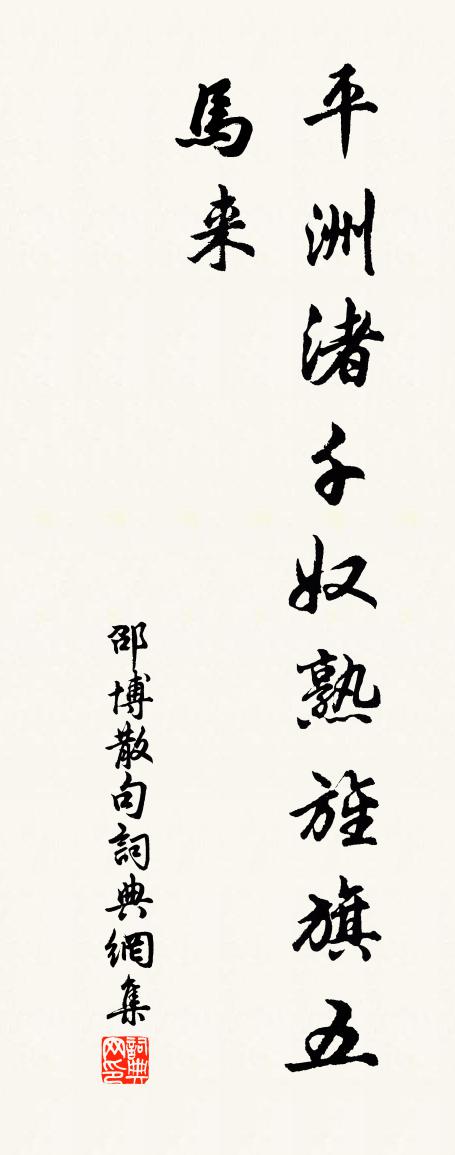 平洲渚千奴熟旌旗五
馬来
邵博散句詞典網集
詞典网印